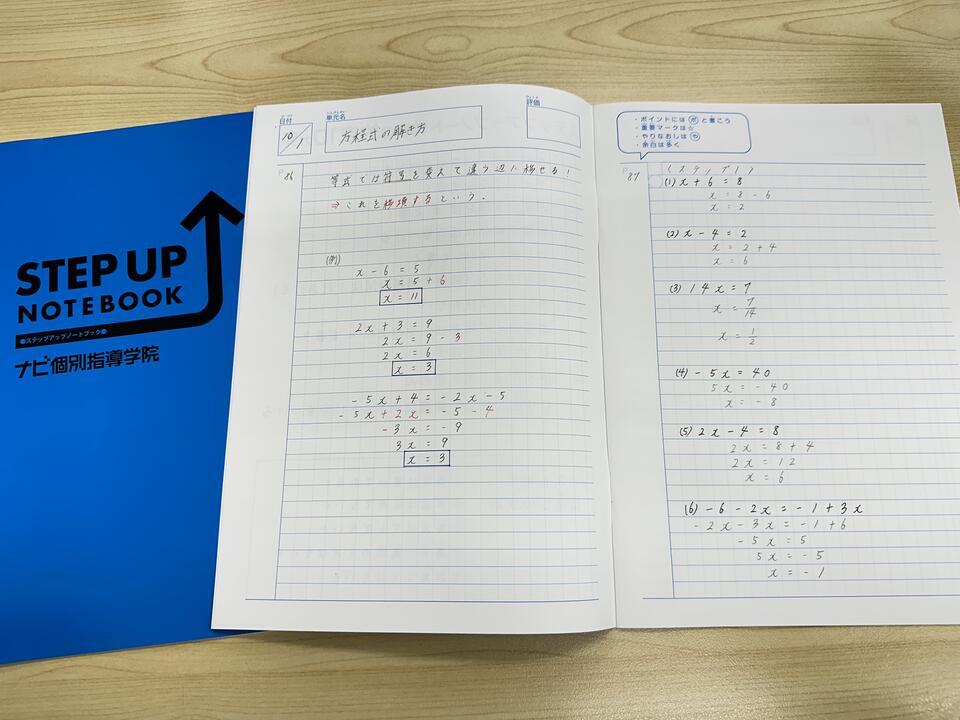 STEP UP
NOTEBOOK
ステップアップノートブック
ナビ個別指導学院
日付
10/1
単元名
方程式の解き方
評価
P.86
等式では符号を変えて違う辺に移せる!
⇒これを移項するという.
(例)
x - 6 = 5
x = 5 + 6
x = 11
2x + 3 = 9
2x = 9 - 3
2x = 6
x = 3
-5x + 4 = -2x - 5
-5x + 2x = -5 - 4
-3x = -9
3x = 9
x = 3
・ポイントには ポ と書こう
・重要マークは☆
・やりなおしは や
・余白は多く
P.87
(ステップ1)
(1) x + 6 = 8
x = 8 - 6
x = 2
(2) x - 4 = 2
x = 2 + 4
x = 6
(3) 14x = 7
x = 7/14
x = 1/2
(4) -5x = 40
5x = -40
x = -8
(5) 2x - 4 = 8
2x = 8 + 4
2x = 12
x = 6
(6) -6 - 2x = -1 + 3x
-2x - 3x = -1 + 6
-5x = 5
5x = -5
x = -1